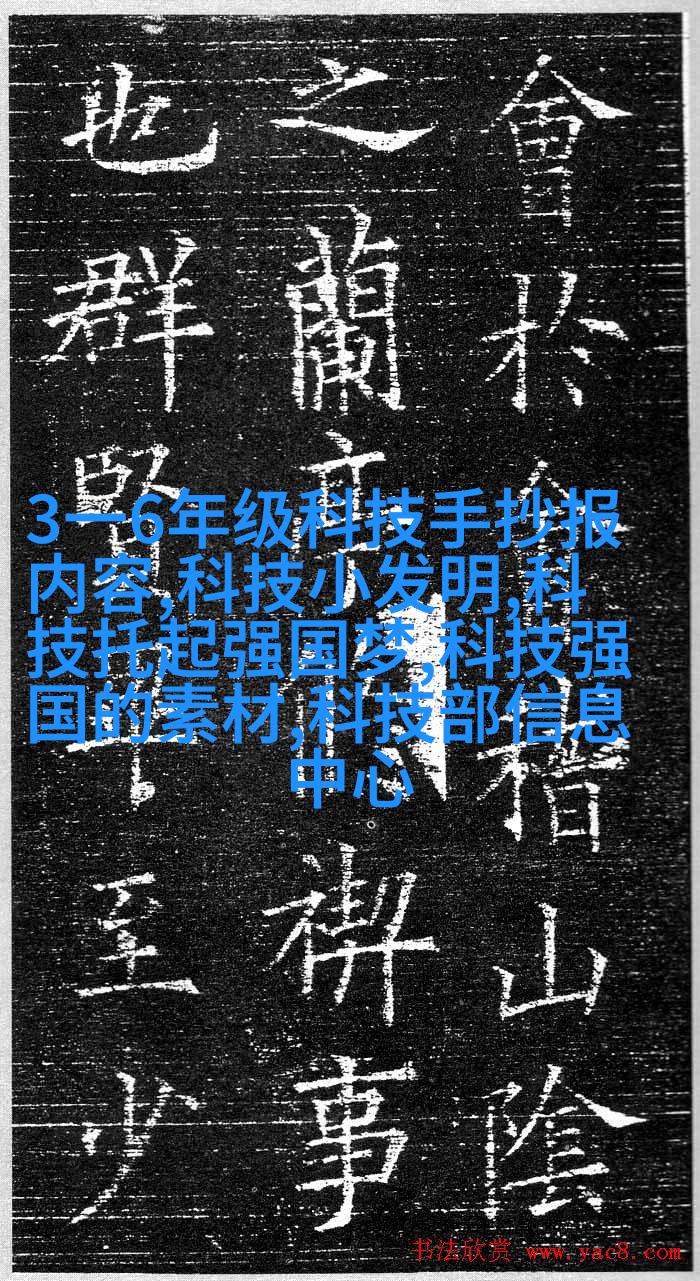 會於會稽山陰
之蘭亭禊事
也群賢至少
3一6年级科技手抄报
内容,科技小发明,科
技托起强国梦,科技强
国的素材,科技部信息
中心
书法欣赏 www.yac8.com